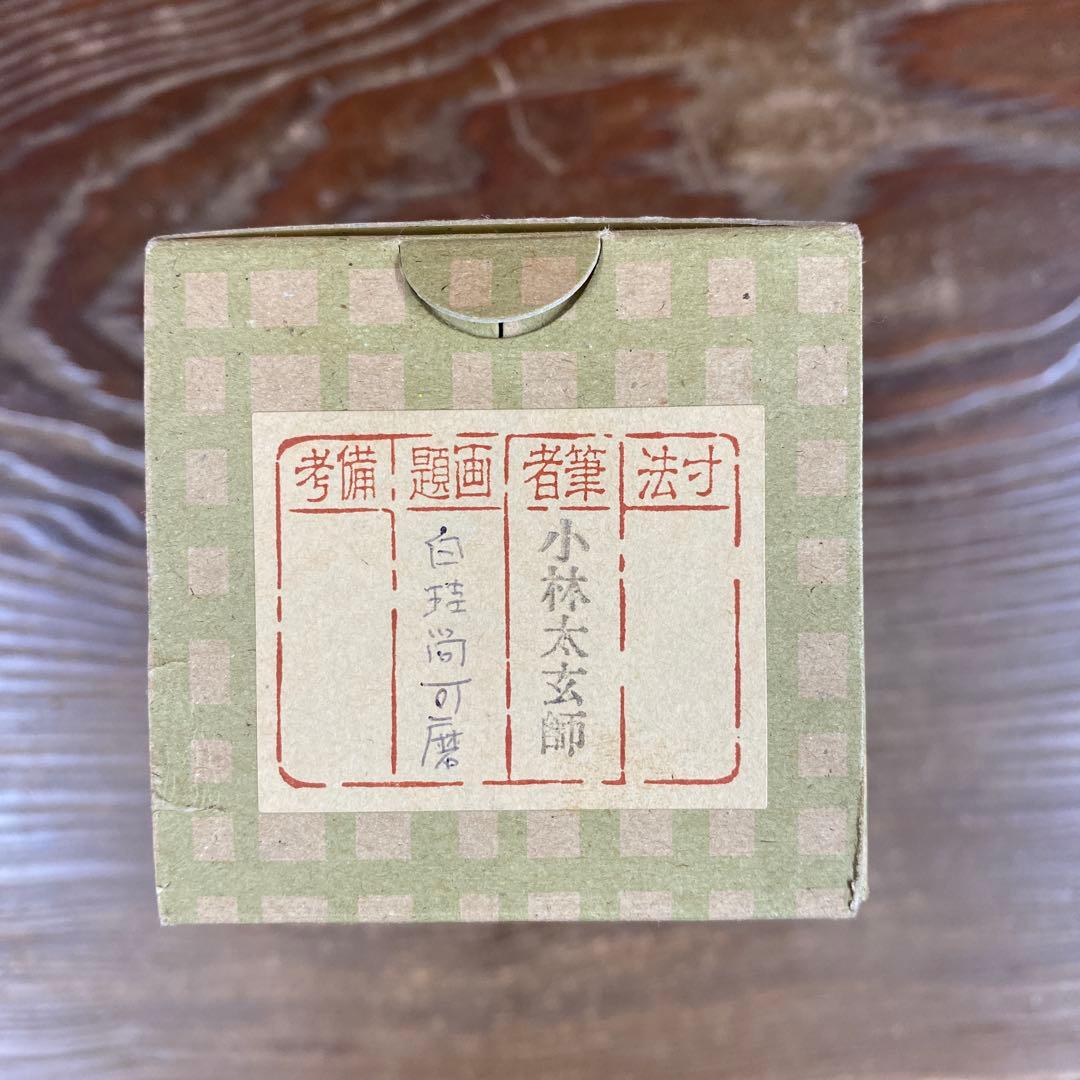 寸法
筆者
小林太玄師
画題
白珪尚可磨
備考